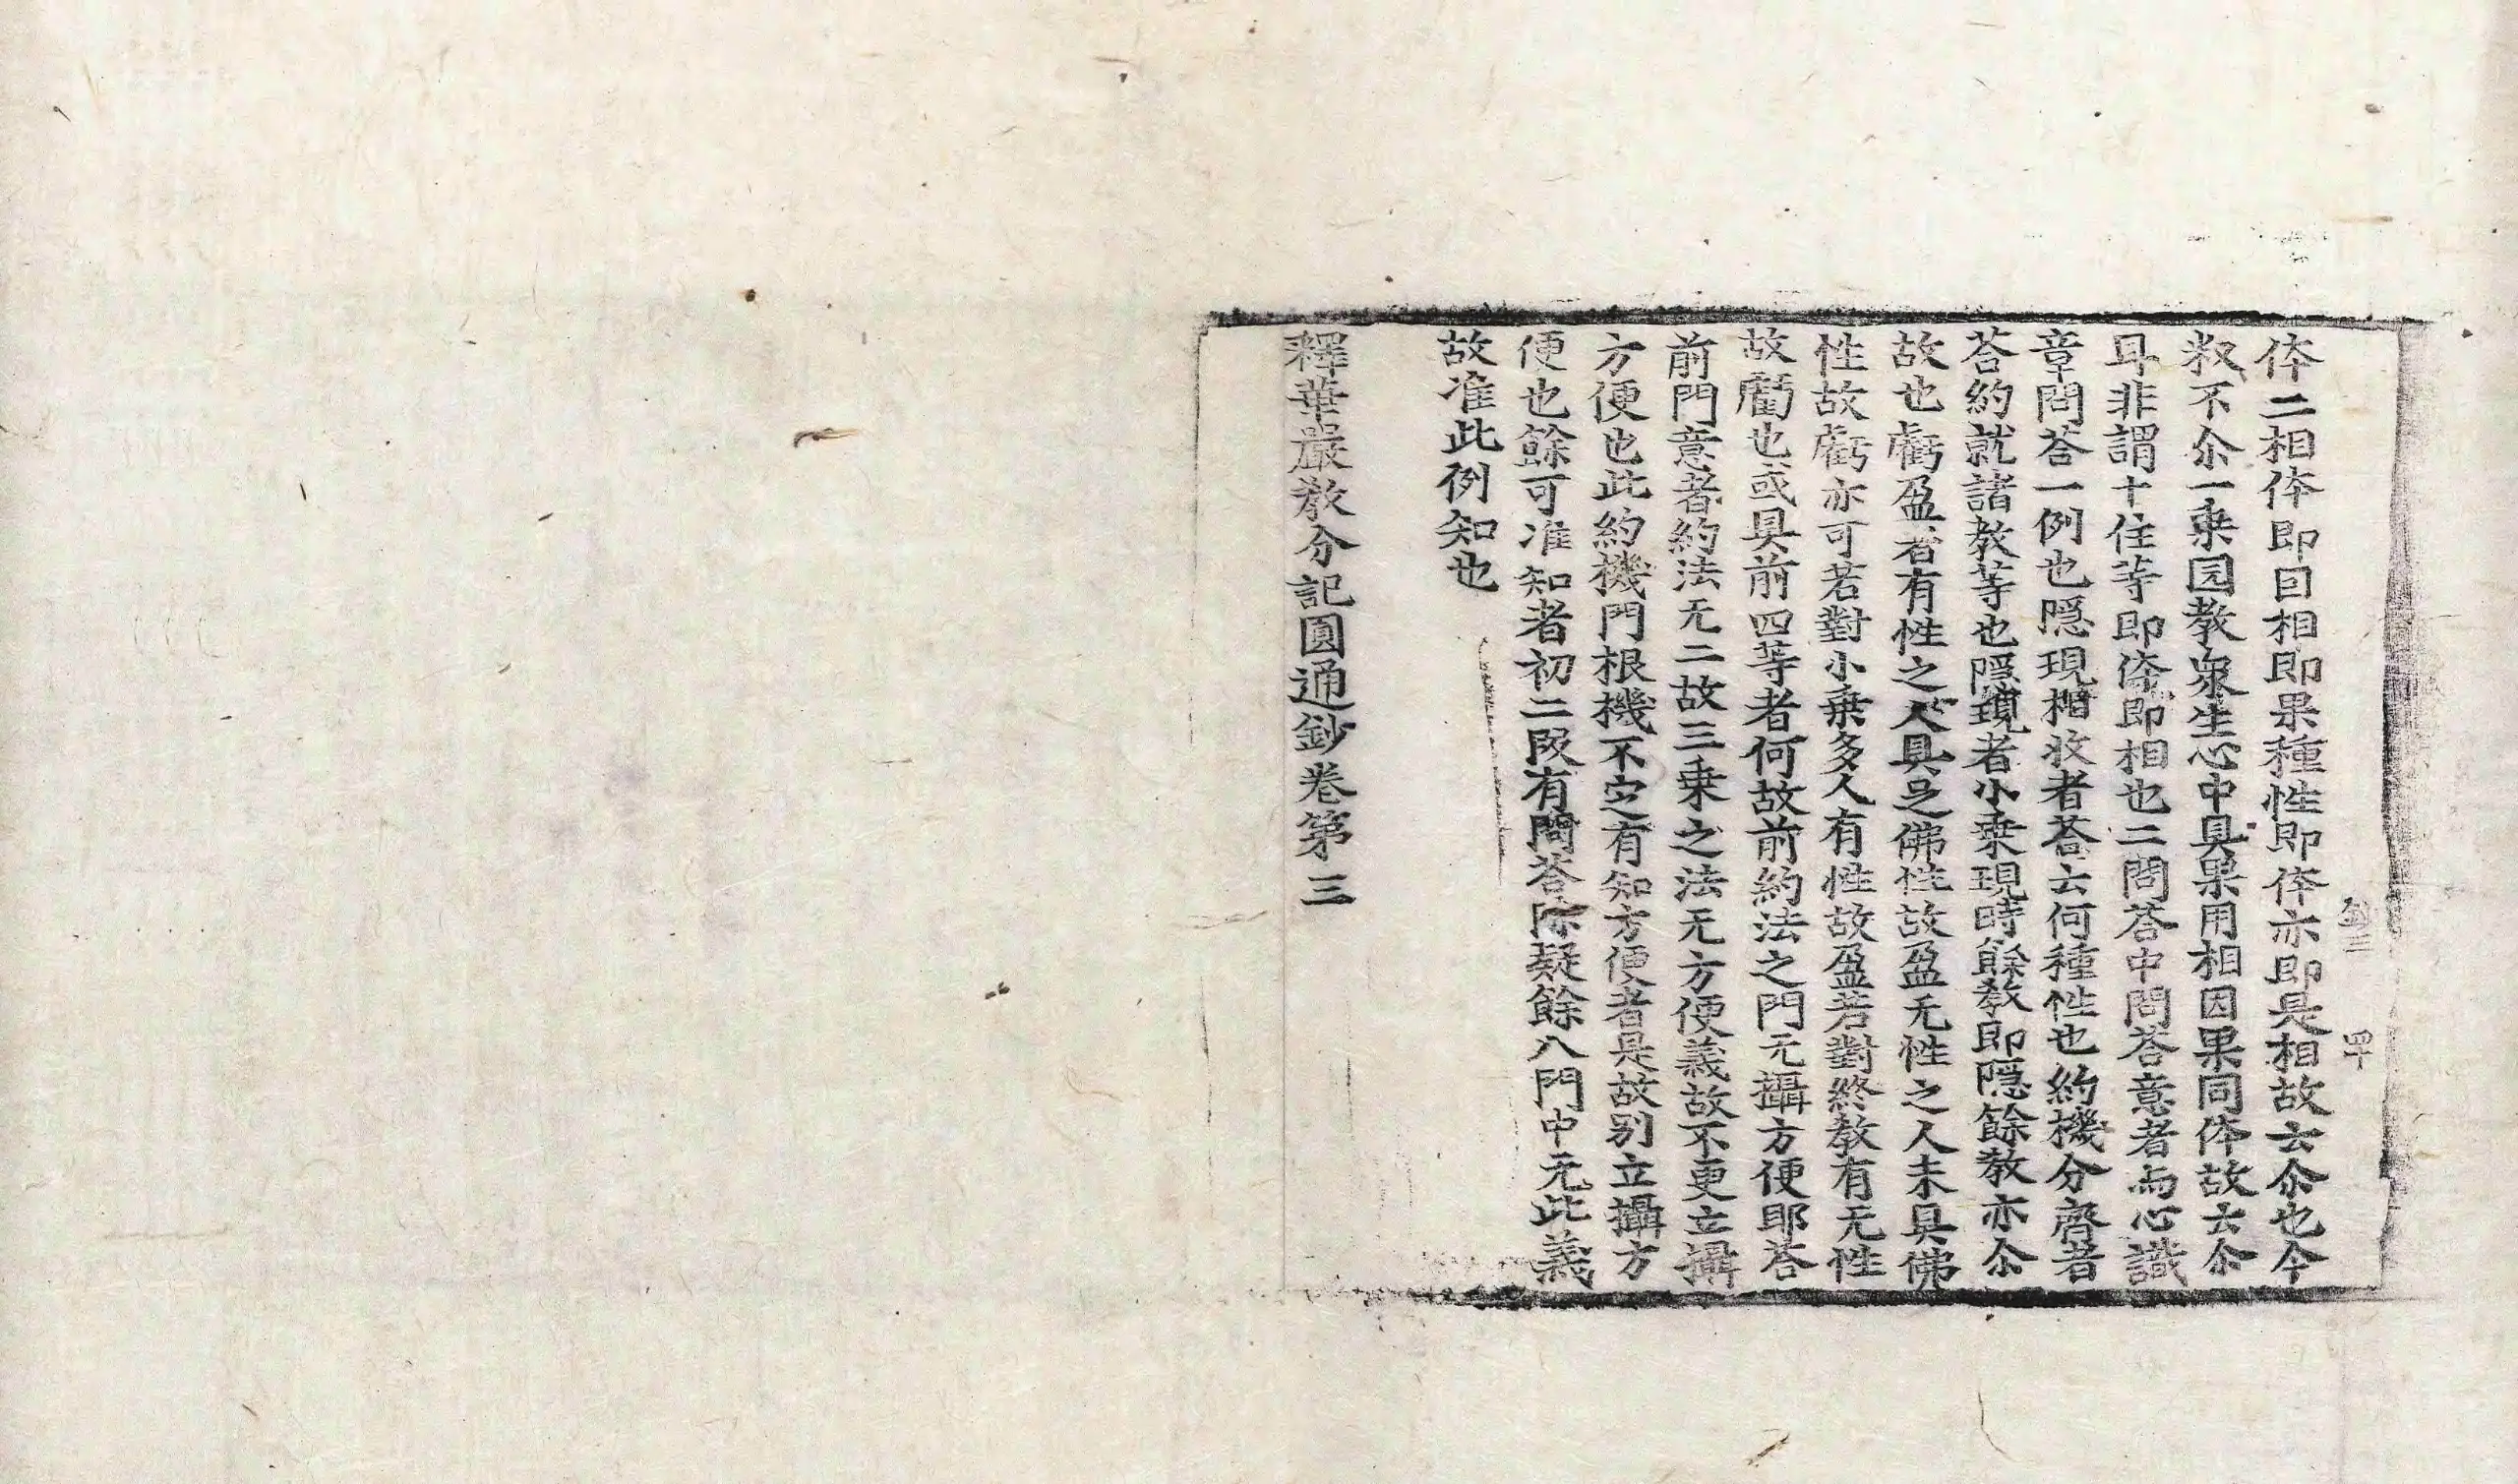 体二相体即囙相即果種性即体亦即是相故云尒也今
敎不尒一乗园教衆生心中具果用相因果同体故云尒
耳非謂十住等即体即相也二問荅中問荅意者而心識
章問荅一例也隠現相收者荅云何種性也約機分齊者
荅約就諸教等也隠現者小乗現時餘教即隠餘教亦尒
故也虧盈者有性之人具足佛性故盈无性之人未具佛
性故虧亦可若對小乗多人有性故盈若對終教有无性
故虧也或具前四等者何故前約法之門元攝方便耶荅
前門意者約法无二故三乗之法无方便義故不更立攝
方便也此約機門根機不定有知方便者是故別立攝方
便也餘可准知者初二叚有問荅除疑餘八門中元此義
故准此例知也
釋華嚴教分記圓通鈔卷第三
鈔三 四十